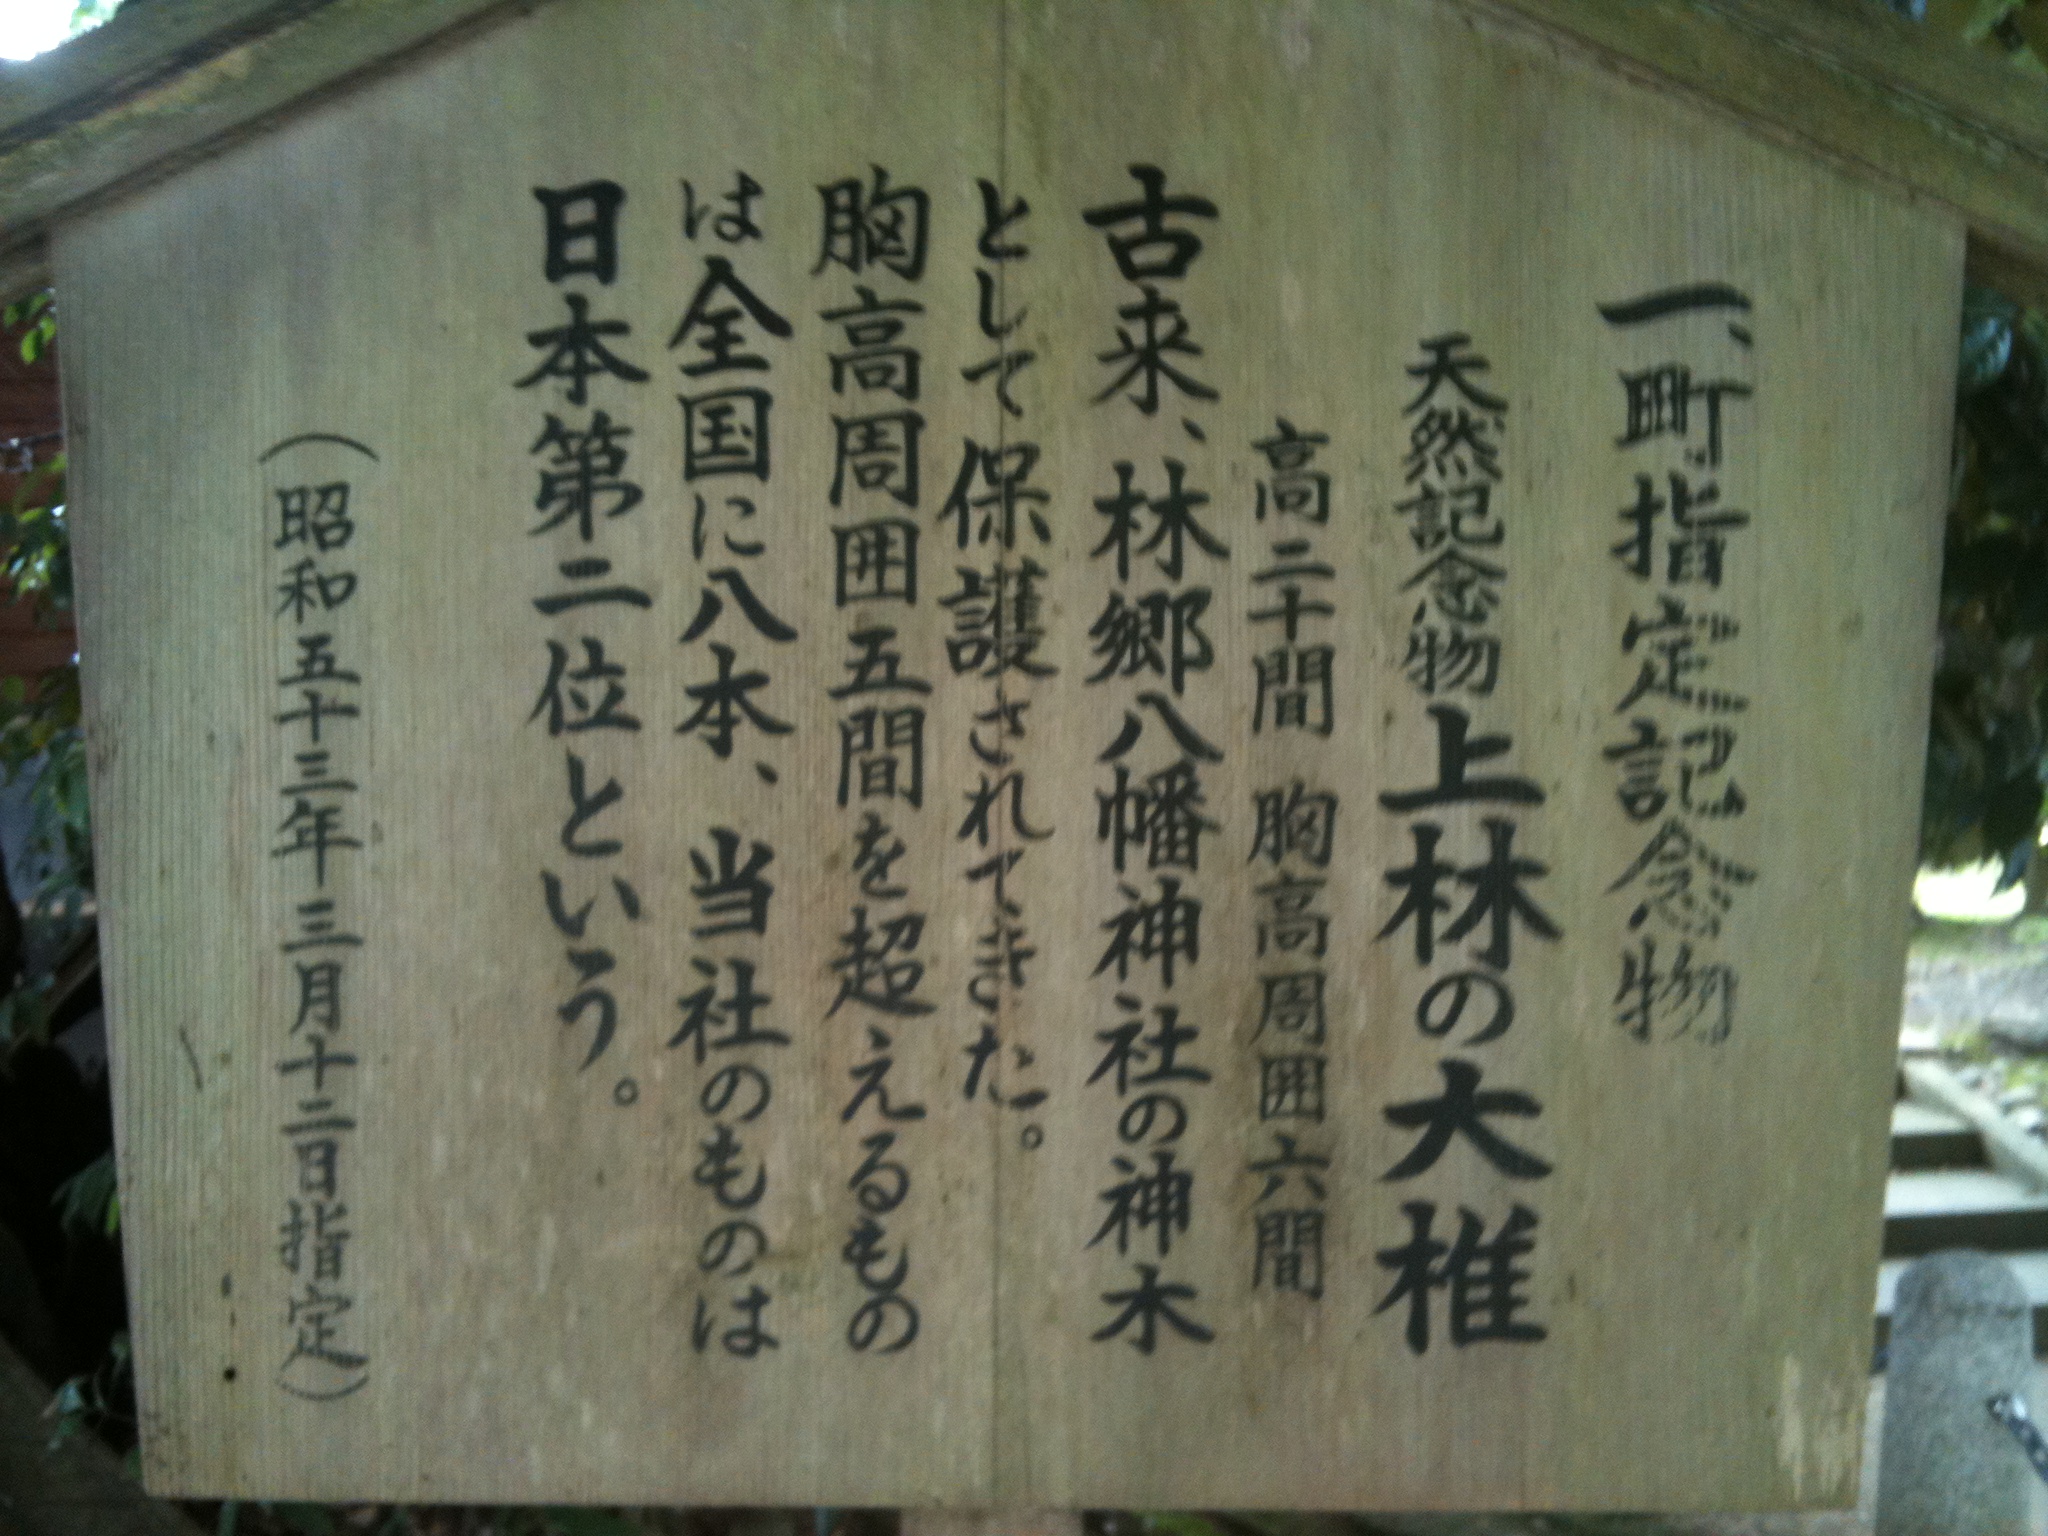 一、町指定記念物
天然記念物上林の大椎
高二十間 胸高周囲六間
古来、林郷八幡神社の神木
として保護されてきた。
胸高周囲五間を超えるもの
は全国に八本、当社のものは
日本第二位という。
（昭和五十三年三月十二日指定）